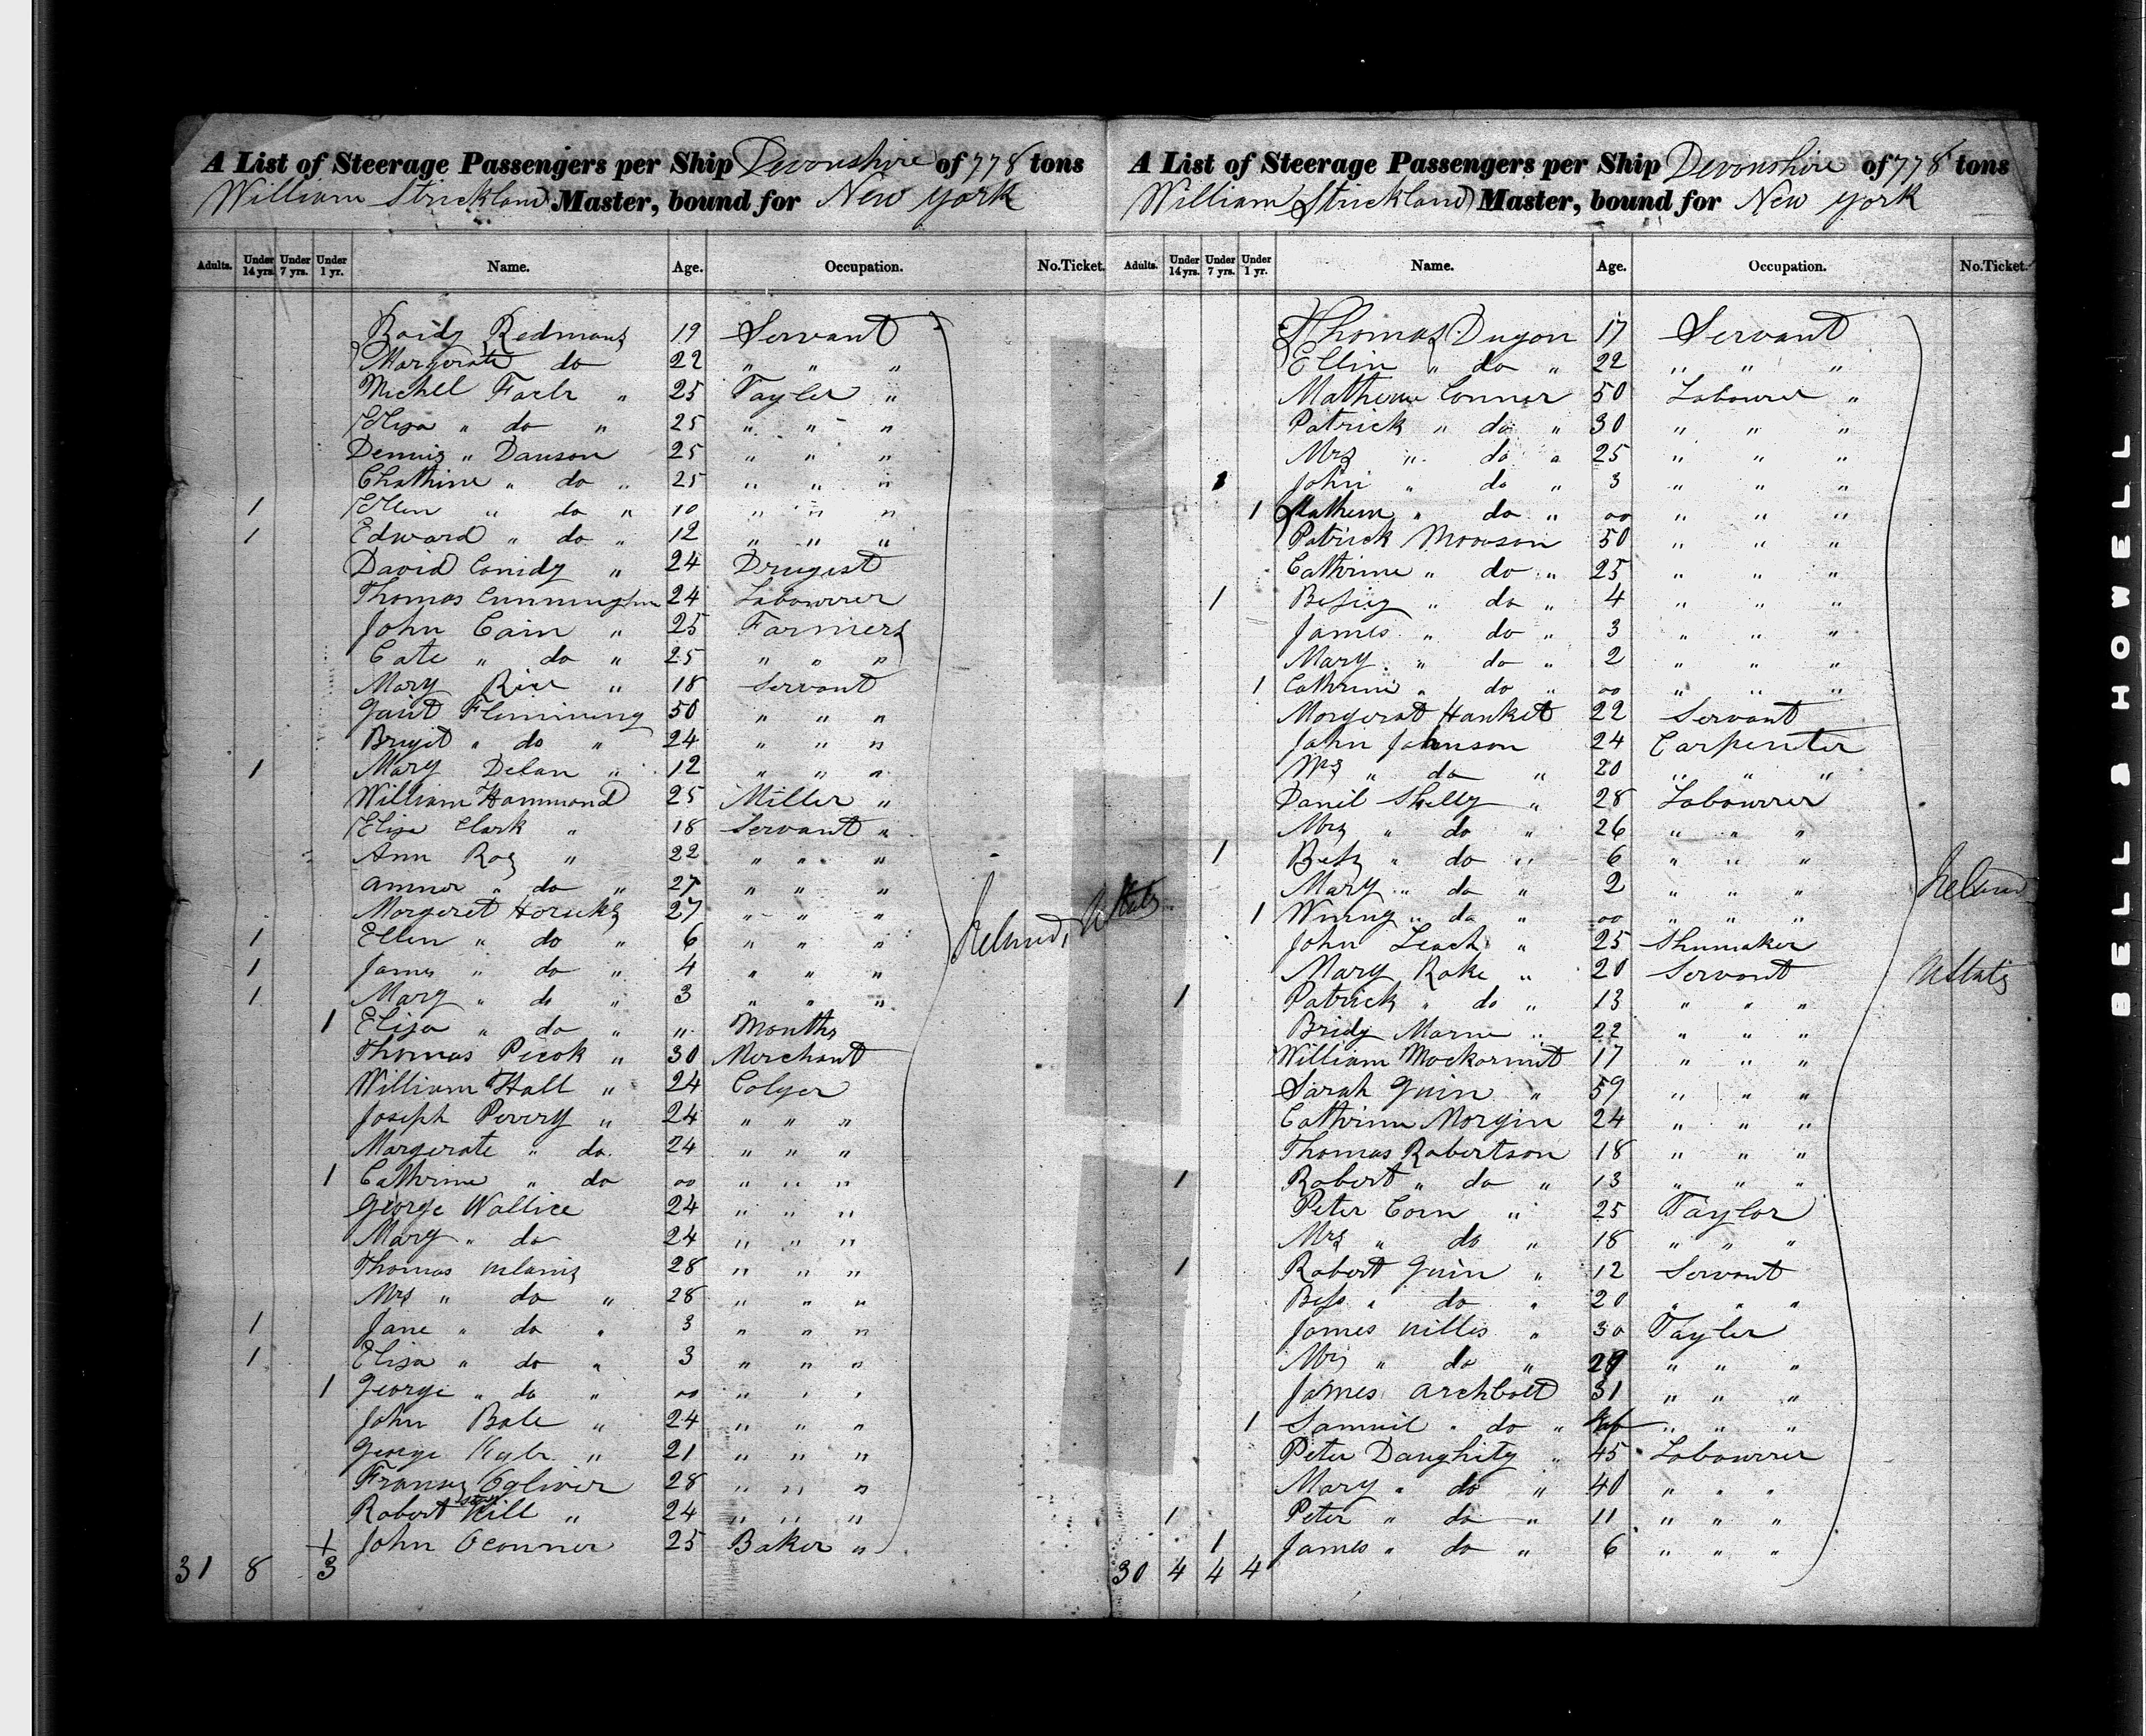 A List of Steerage Passengers per Ship Devonshire of 778 tons
William Strickland Master, bound for New York
Adults. Under 14 yrs. Under 7 yrs. Under 1 yr. Name. Age. Occupation. No. Ticket.
Redmons 19 Servant
Margerate do 22 " " "
Michel " 25 Tayler "
Eliza " do " 25 " " "
Dennis " Dauson 25 " " "
Chathine " do " 25 " " "
1 Ellen " do " 10 " " "
1 Edward " do " 12 " " "
David Conidy " 24 Drugist
Thomas Cunningham 24 Labowrer
John Cain " 25 Farmers
Cate " do " 25 " " "
Mary Rice " 18 Servant
Flemineng 50 " " "
Brigit " do " 24 " " "
1 Mary Delan " 12 " " "
William Hammond 25 Miller "
Eliza Clark " 18 Servant "
Ann Ros " 22 " " "
" do " 27 " " "
Margeret Horicks 27 " " "
1 Ellen " do " 6 " " "
1 James " do " 4 " " "
1 Mary " do " 3 " " "
1 Eliza " do " " Months
Thomas Picok " 30 Merchant
William Hall " 24 Colyer
Joseph Pevery " 24 " " "
Margerate " do. 24 " " "
1 Cathrine " do oo " " "
George Wallice 24 " " "
Mary " do 24 " " "
Thomas 28 " " "
Mrs " do " 28 " " "
1 Jane " do " 3 " " "
1 Eliza " do " 3 " " "
1 George " do " oo " " "
John Bale " 24 " " "
George " 21 " " "
Ogliver 28 " " "
Robert Hill " 24 " " "
+ John Oconner 25 Baker "
31 8 3
Ireland, U States
A List of Steerage Passengers per Ship Devonshire of 778 tons
William Strickland Master, bound for New York
Adults. Under 14 yrs. Under 7 yrs. Under 1 yr. Name. Age. Occupation. No. Ticket.
Thomas Dugon 17 Servant
Ellin " do " 22 " " "
Mathew Connor 50 Labourer "
Patrick " do " 30 " " "
Mrs " do " 25 " " "
1 John " do " 3 " " "
1 " do " oo " " "
Patrick Mooson 50 " " "
Cathrine " do " 25 " " "
1 " do " 4 " " "
James " do " 3 " " "
Mary " do " 2 " " "
1 Cathrine " do " oo " " "
Morgerat Hanket 22 Servant
John Johnson 24 Carpenter
Mrs " do " 20 " " "
Danil Shelly " 28 Labowrer
Mrs " do " 26 " " "
1 " do " 6 " " "
Mary " do " 2 " " "
1 " do " oo " " "
John Leach " 25 Shumaker
Mary Roke " 20 Servant
1 Patrick " do " 13 " " "
Bridy Marne " 22 " " "
William Mockormit 17 " " "
Sarah Guin " 59 " " "
Cathrinn Morgin 24 " " "
Thomas Robertson 18 " " "
1 Robert " do " 13 " " "
Peter Corn " 25 Taylor
Mrs " do " 18 " " "
1 Robert Guin " 12 Servant
Bess " do " 20 " " "
James Willis " 30 Tayler
Mrs " do " 29 " " "
James Archbolt 31 " " "
1 Samuil " do " " " "
Peter Daughity " 45 Labowrer
Mary " do " 40 " " "
1 Peter " do " 11 " " "
1 James " do " 6 " " "
30 4 4 4
Ireland
U States
BELL & HOWELL